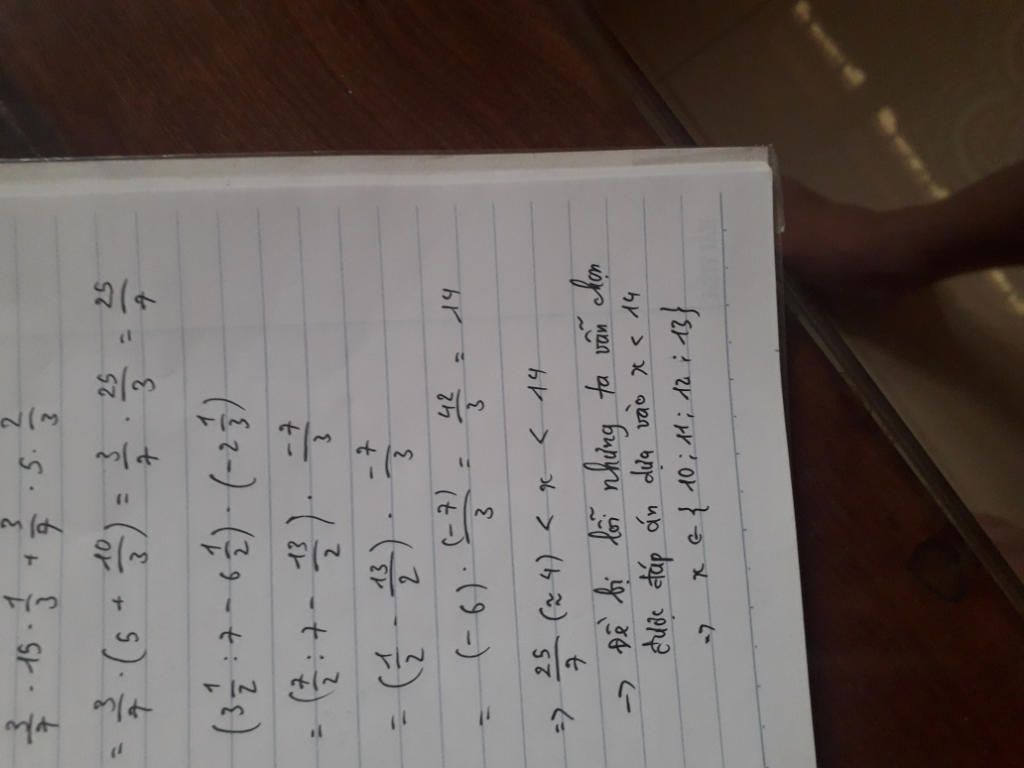 3/7 . 15 . 1/3 + 3/7 . 5 . 2/3
= 3/7 . (5 + 10/3) = 3/7 . 25/3 = 25/7
(3 1/2 : 7 - 6 1/2) . (-2 1/3)
= (7/2 : 7 - 13/2) . -7/3
= (1/2 - 13/2) . -7/3
= (-6) . (-7)/3 = 42/3 = 14
=> 25/7 (≈4) < x < 14
→ Đề bị lỗi nhưng ta vẫn chọn
được đáp án dựa vào x < 14
=> x ∈ {10; 11; 12; 13}